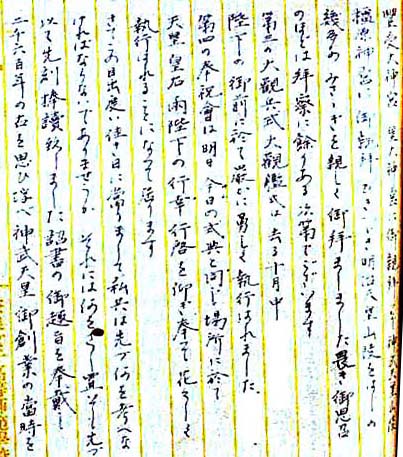 豊受大神宮
橿原神宮に御親拝
明治天皇山陵をはじめ
幾多のみさゝぎを親しく御拝ましました畏き御思召
のほどは拝察に餘りある次第でございます
第三の大観兵式大観艦式は去る十月中
陛下の御前に於て厳かに勇しく執行はれました
第四の奉祝會は明日今日の式典と同じ場所に於て
天皇皇后両陛下の行幸行啓を仰ぎ奉て花々しく
執行はれることになつて居ります
さてこの目出度い佳き日に當りまして私共は先づ何を考へな
ければならないでありませうか それには何をさし置いても先づ
以て先刻捧讀致しました詔書の御趣旨を奉戴し
二千六百年のむかしを思ひ浮べ神武天皇御創業の當時を